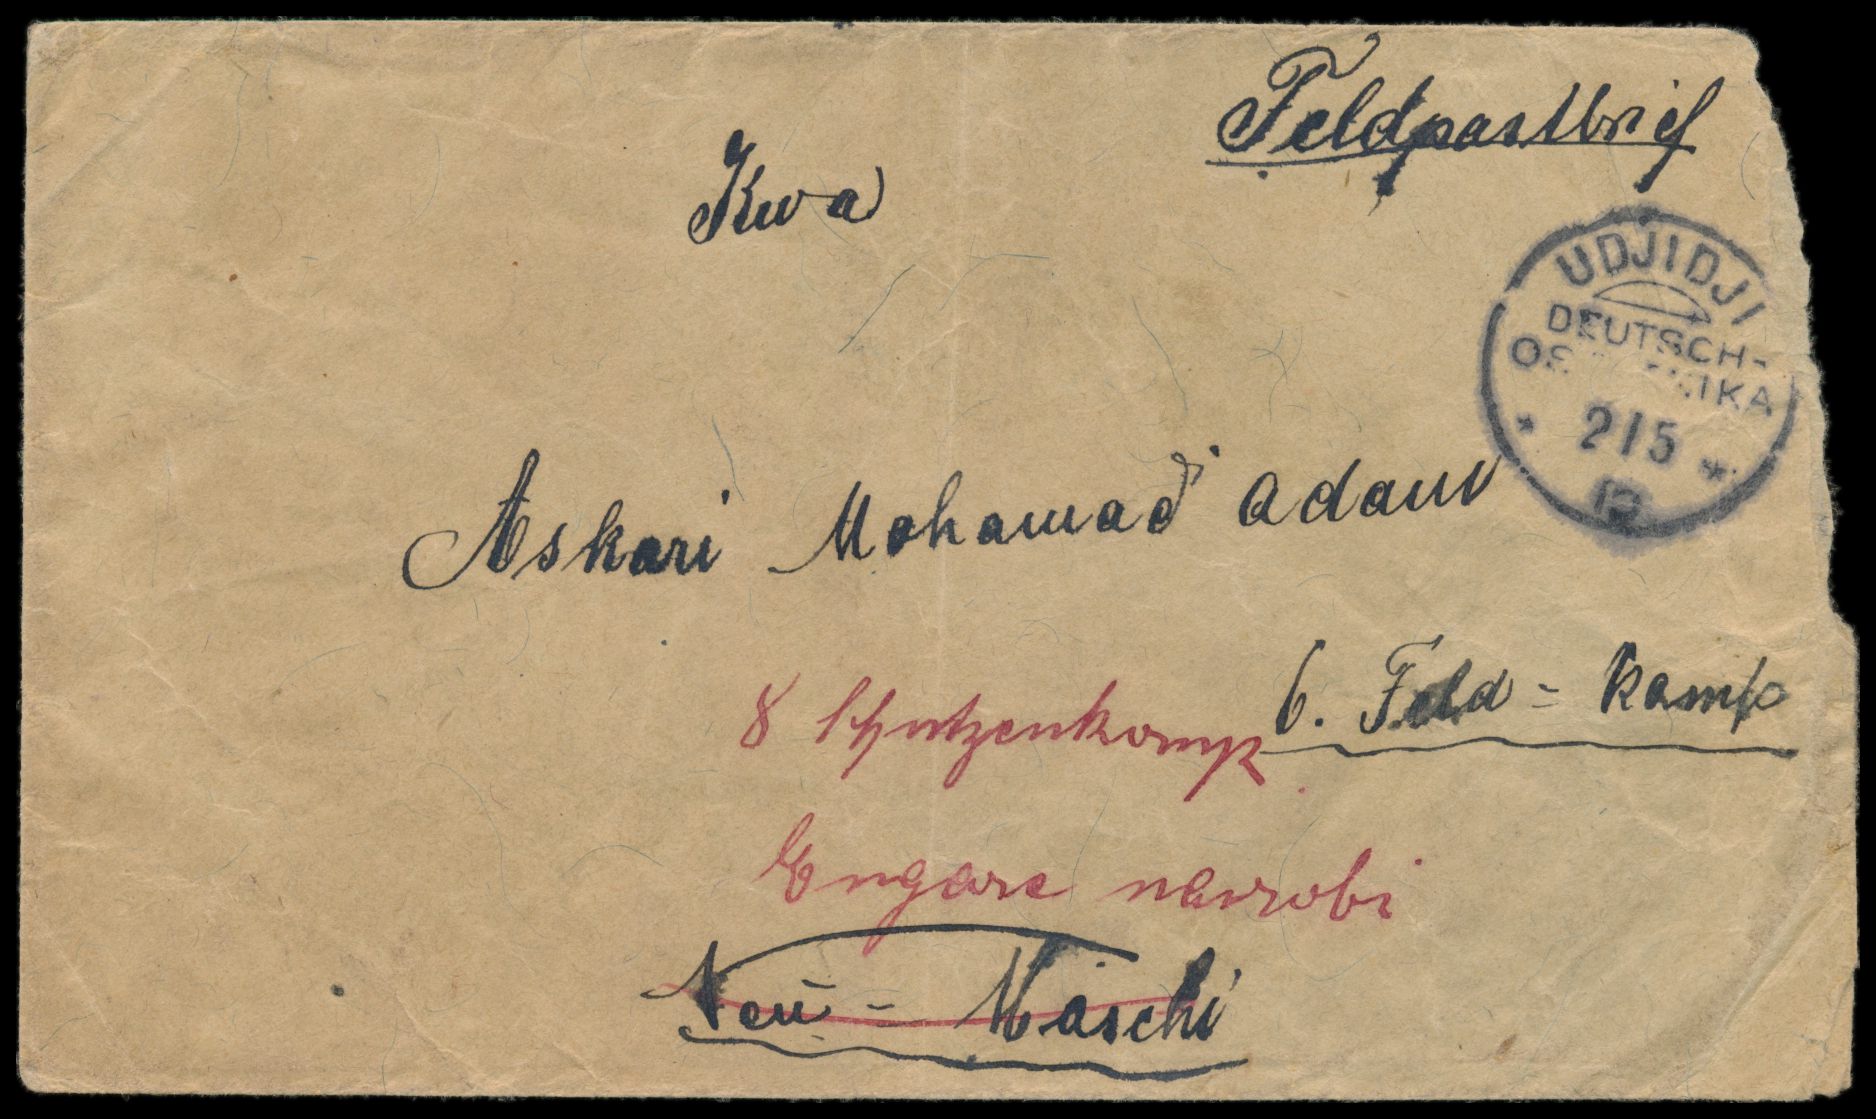 Feldpostbrief
Kwa
UDJIDJI
DEUTSCH-
2/5
Askari Mohamad adam
6. Feld = Komp
8 Schützenkomp
Engare nairobi
Neu = Moschi